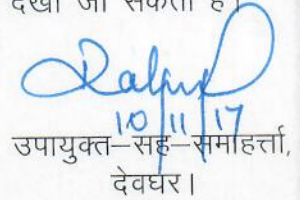 देखा जा सकता है।
10/11/17
उपायुक्त–सह–समाहर्त्ता,
देवघर।